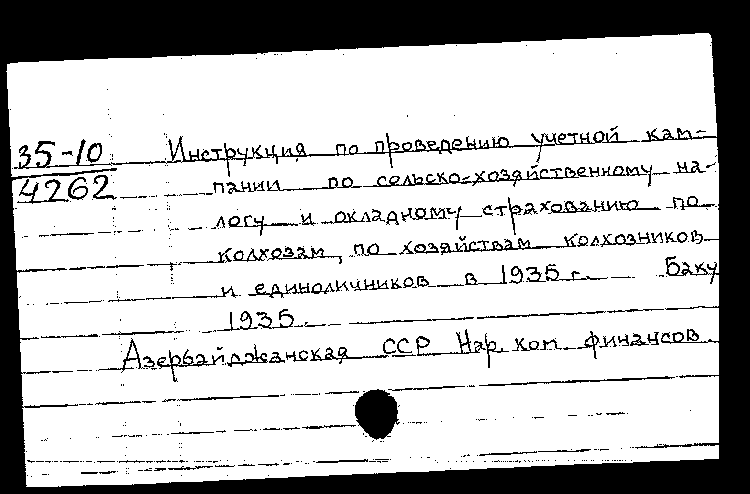 35-10
4262
Инструкция по проведению учетной кам-
пании по сельско-хозяйственному на-
логу и окладному страхованию по
колхозам, по хозяйствам колхозников
и единоличников в 1935 г. Баку
1935.
Азербайджанская ССР Нар. ком. финансов.